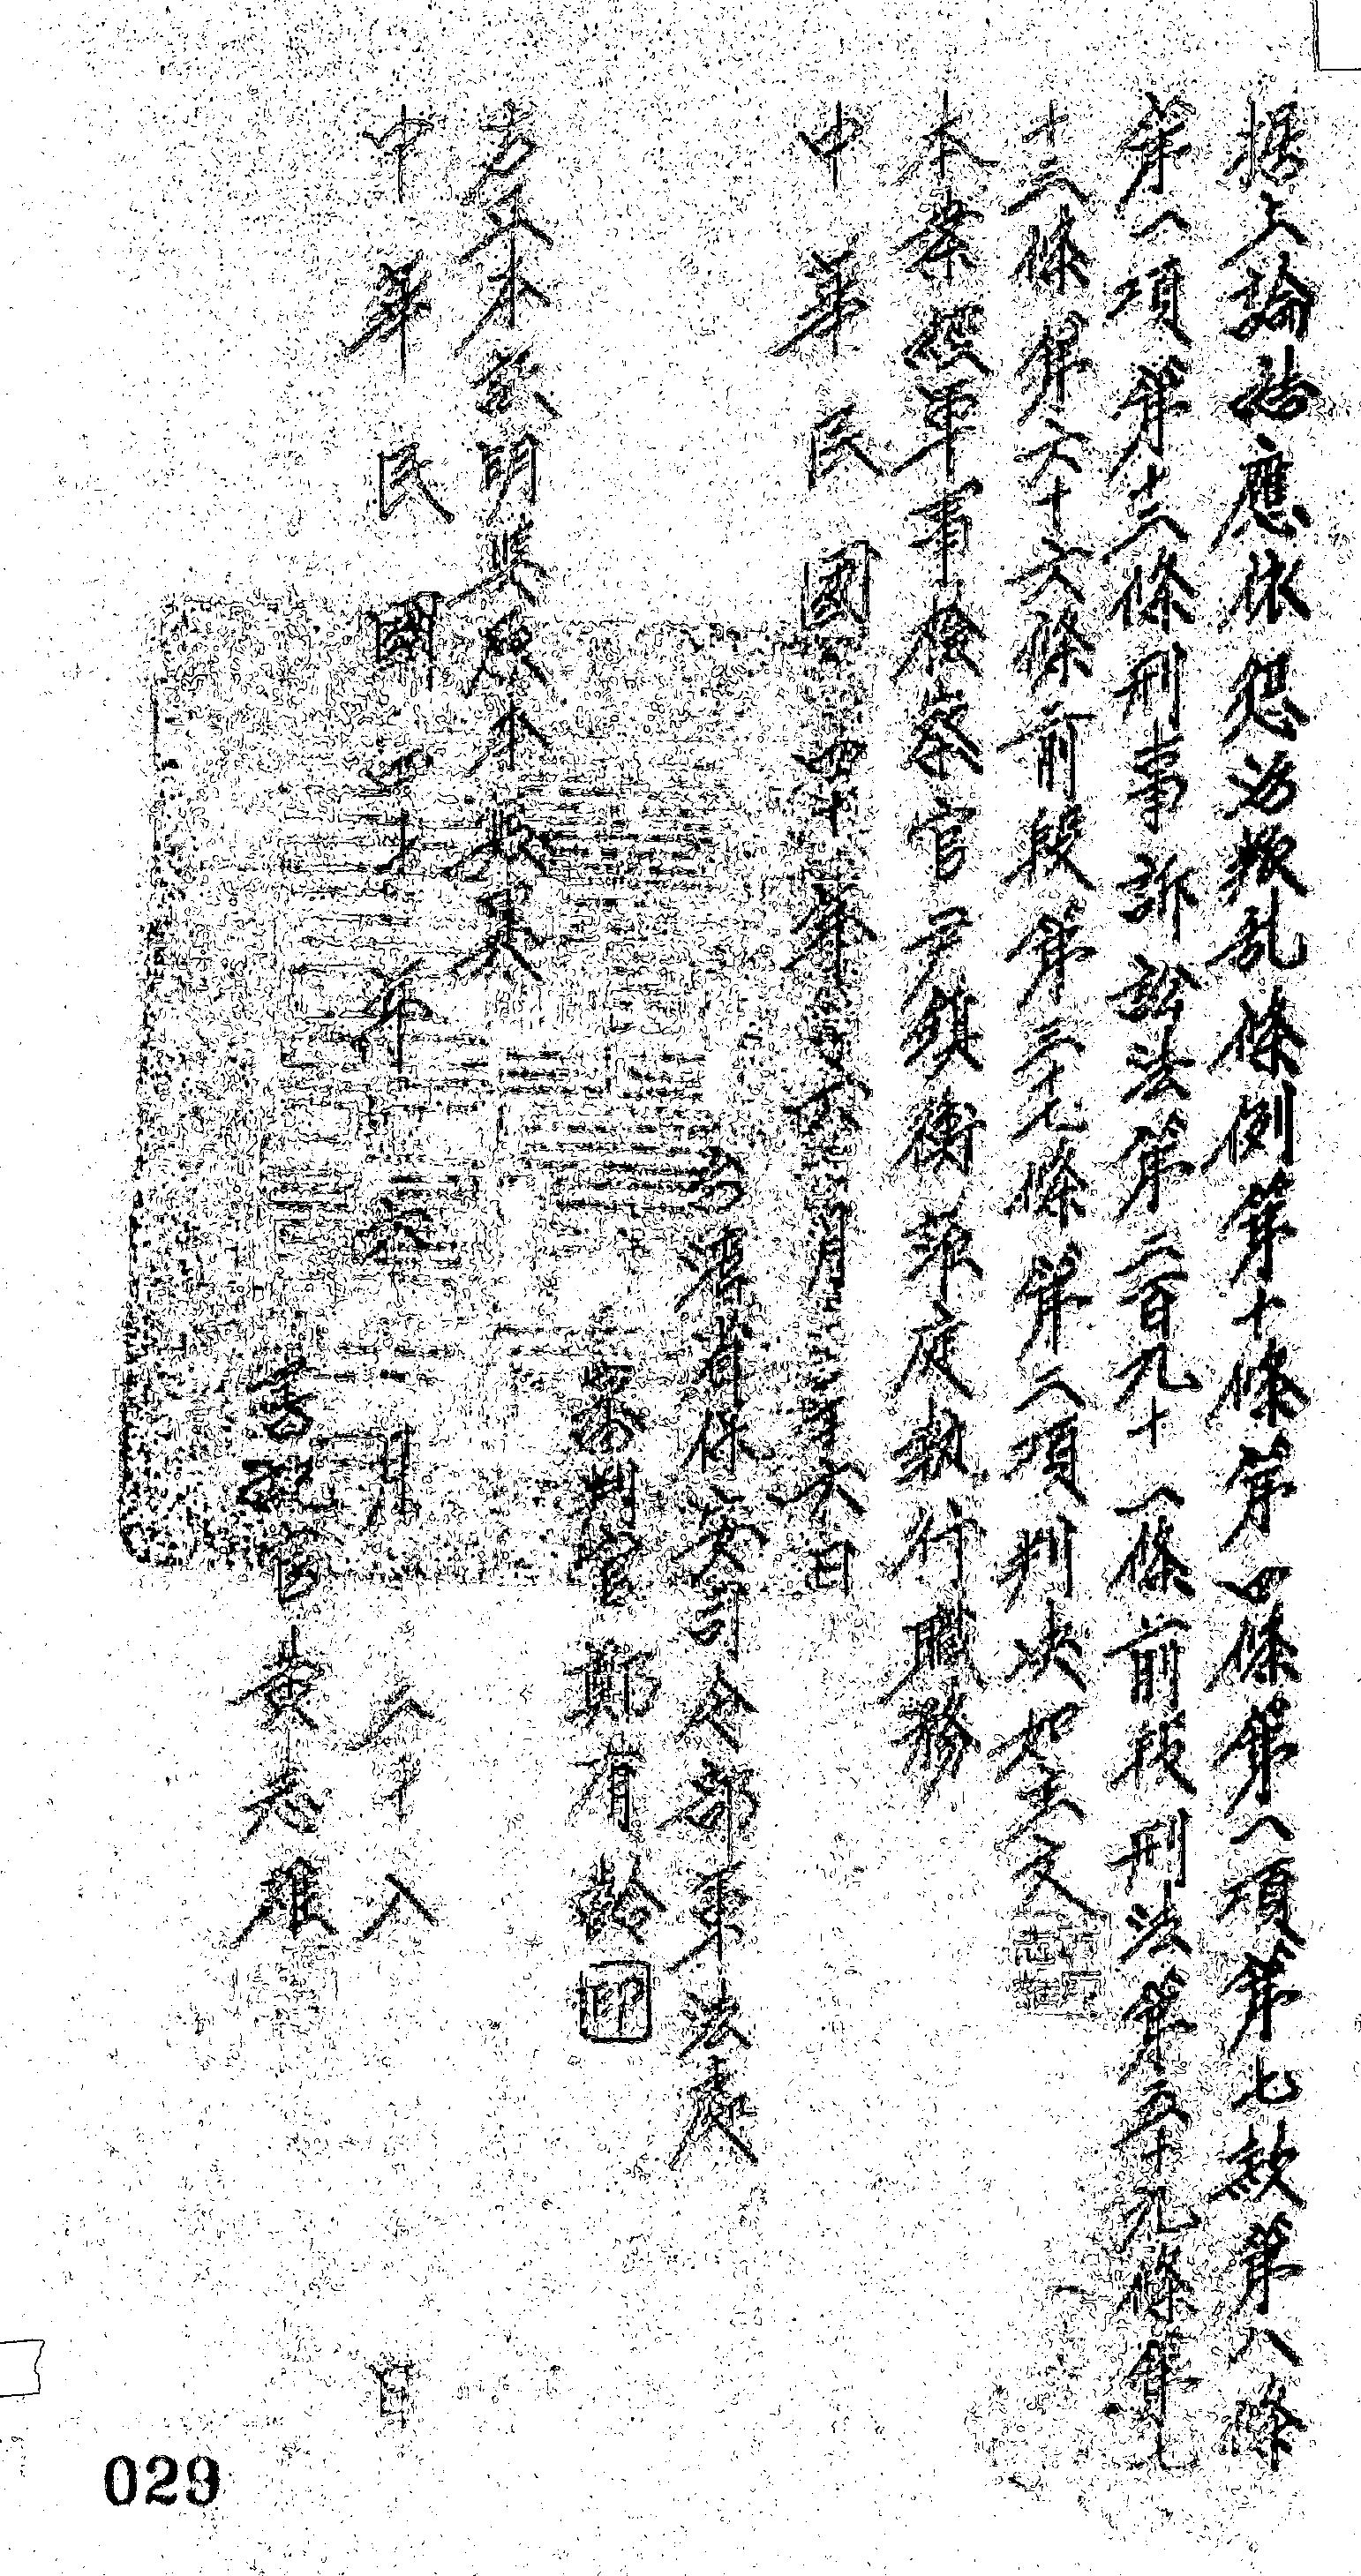 據上論結應依懲治叛乱條例第十條第四條第一項第七款第八條
第一項第十二條刑事訴訟法第二百九十一條前段刑法第五十九條第七
十三條第六十六條前段第三十七條第二項判決如主文
本案經軍事檢察官尹鎮衡蒞庭執行職務
中華民國四十年六月十六日
台灣省保安司令部軍法處
審判官鄭有齡印
右正本證明與原本無異
中華民國四十年六月二十八日
書記官黃志雄
029